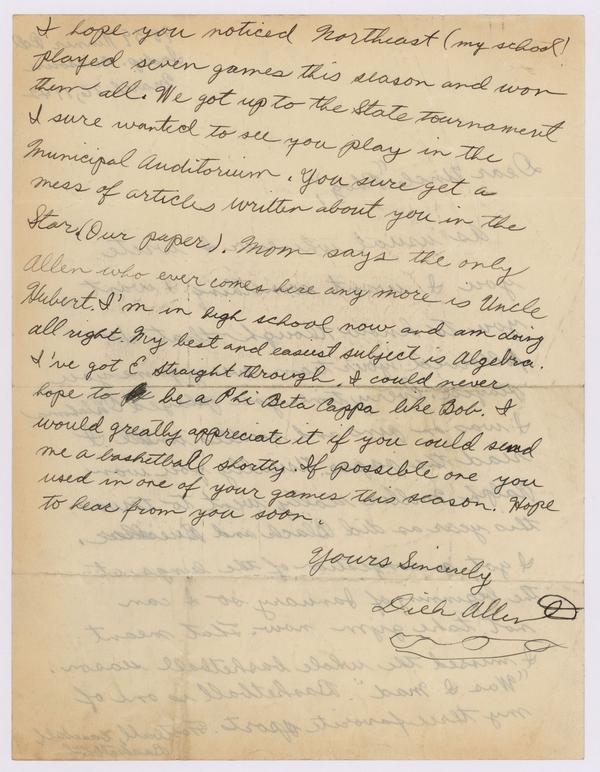 I hope you noticed Northeast (my school)
played seven games this season and won
them all. We got up to the State tournament
I sure wanted to see you play in the
Municipal Auditorium. You sure get a
mess of articles written about you in the
Star. (Our paper). Mom says the only
Allen who ever comes here any more is Uncle
Hubert. I'm in high school now and am doing
all right. My best and easiest subject is Algebra.
I've got E straight through. I could never
hope to be a Phi Beta Cappa like Bob. I
would greatly appreciate it if you could send
me a basketball shortly. If possible one you
used in one of your games this season. Hope
to hear from you soon.
Yours Sincerely
Dick Allen